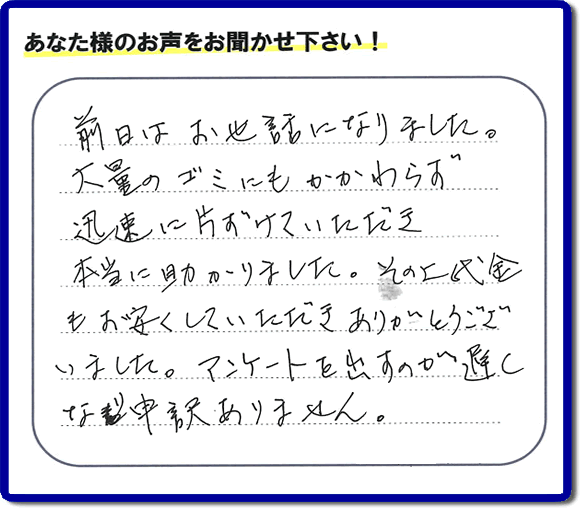 あなた様のお声をお聞かせ下さい！
前日はお世話になりました。
大量のゴミにもかかわらず
迅速に片ずけていただき
本当に助かりました。その上代金
もお安くしていただきありがとうござ
いました。アンケートを出すのが遅く
なり申訳ありません。